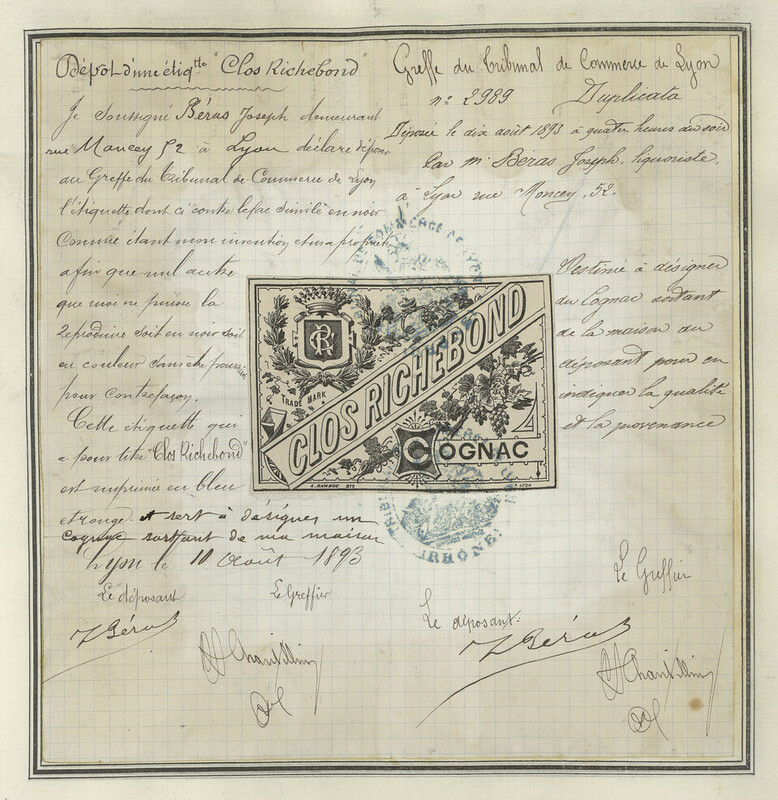 Dépôt d'une étiqtte "Clos Richebond"
Je soussigné Béras Joseph demeurant
rue Moncey 52 à Lyon déclare déposer
au Greffe du Tribunal de Commerce de Lyon
l'étiquette dont ci contre le fac similé en noir
comme étant mon invention et ma propriété
afin que nul autre
que moi ne puisse la
reproduire soit en noir soit
en couleur sans être poursuivi
pour contrefaçon.
Cette étiquette qui
a pour titre "Clos Richebond"
est imprimée en bleu
et rouge. et sert à désigner un
cognac sortant de ma maison
Lyon le 10 Août 1893
Le déposant Le Greffier
J Béras
Greffe du Tribunal de Commerce de Lyon
no 2989 Duplicata
Déposée le dix août 1893 à quatre heures du soir
Par mr Béras Joseph, liquoriste,
à Lyon rue Moncey, 52.
Destinée à désigner
du Cognac sortant
de la maison du
déposant pour en
indiquer la qualité
et la provenance
Le Greffier
Le déposant:
J Béras
R
TRADE MARK
CLOS RICHEBOND
COGNAC
COMMERCE DE LYON
RHÔNE